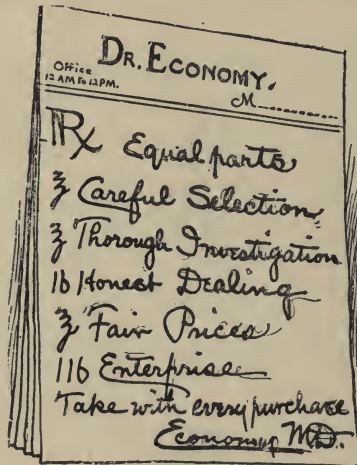 DR. ECONOMY.
Office
12 AM to 12 PM.
M
℞ Equal parts
ʒ Careful Selection
ʒ Thorough Investigation
lb Honest Dealing
ʒ Fair Prices
1 lb Enterprise
Take with every purchase
Economy MD.